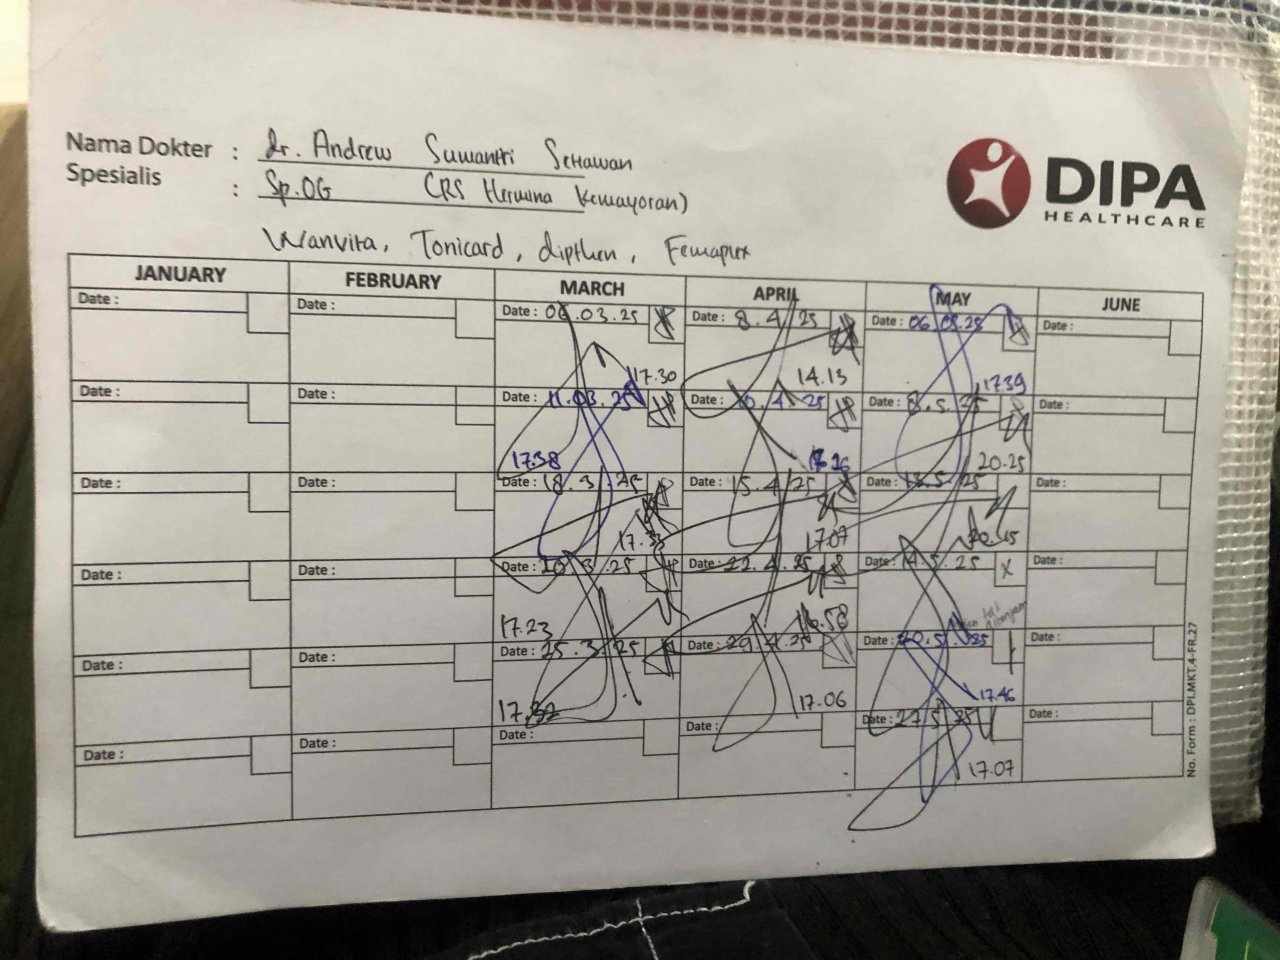 Nama Dokter : dr. Andrew Suwantri Setiawan
Spesialis : Sp.OG (RS Hermina Kemayoran)
DIPA
HEALTHCARE
Wanvita, Tonicard, dipthen, Femaplex
JANUARY FEBRUARY MARCH APRIL MAY JUNE
Date : Date : Date : 06.03.25 Date : 8.4.25 Date : 06.05.25 Date :
17.30 14.13 17.39
Date : Date : Date : 11.03.25 Date : 10.4.25 Date : 8.5.25 Date :
17.38 20.25
Date : Date : Date : 18.3.25 Date : 15.4.25 Date : 13.5.25 Date :
17.33 17.07 20.15
Date : Date : Date : 20.3.25 Date : 22.4.25 Date : 14.5.25 X Date :
17.23 16.58
Date : Date : Date : 25.3.25 Date : 29.4.25 Date : 20.5.25 Date :
17.32 17.06 17.46
Date : Date : Date : Date : Date : 27.5.25 Date :
17.07
No. Form : DPI.MKT.4-FR.27